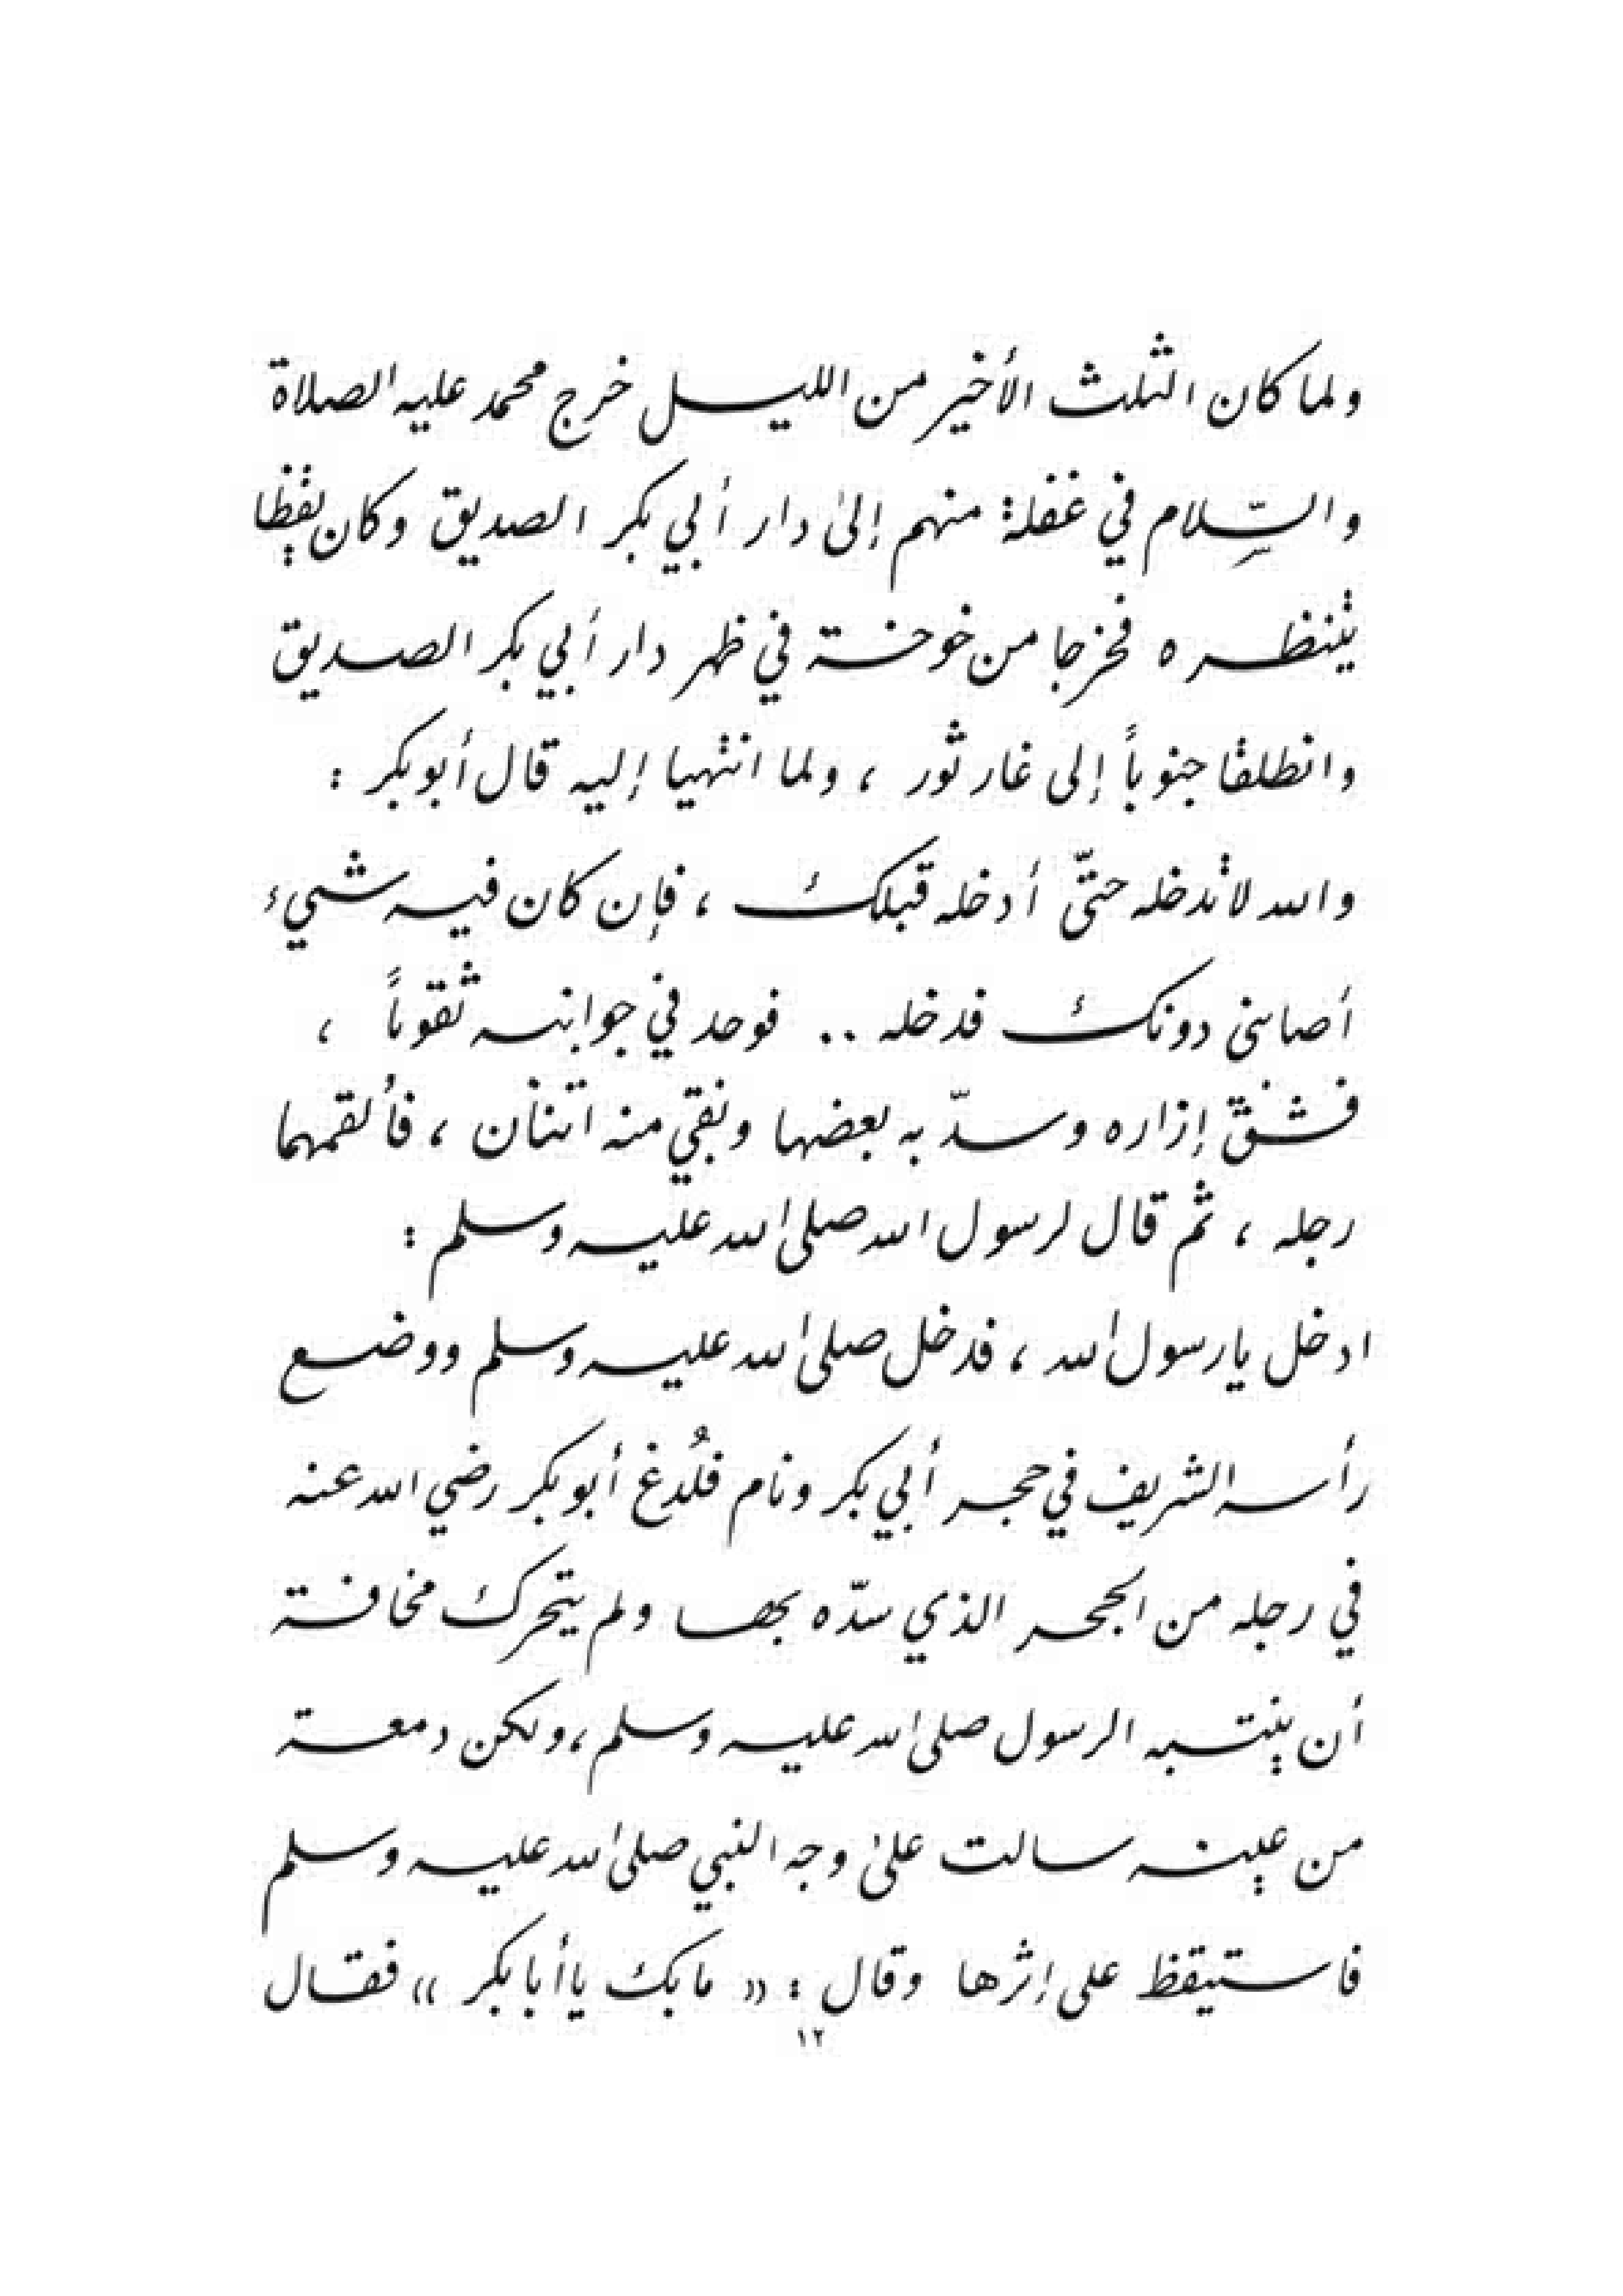 ولما كان الثلث الأخير من الليل خرج محمد عليه الصلاة
والسِّلام في غفلة منهم إلى دار أبي بكر الصديق وكان يقظا
ينتظره فخرجا من خوخة في ظهر دار أبي بكر الصديق
وانطلقا جنوباً إلى غار ثور ، ولما انتهيا إليه قال أبو بكر :
والله لا تدخله حتّى أدخله قبلك ، فإن كان فيه شيء
أصابني دونك فدخله .. فوجد في جوانبه ثقوباً ،
فشقّ إزاره وسدّ به بعضها وبقي منه اثنان ، فألقمهما
رجله ، ثم قال لرسول الله صلى الله عليه وسلم :
ادخل يا رسول الله ، فدخل صلى الله عليه وسلم ووضع
رأسه الشريف في حجر أبي بكر ونام فلُدغ أبو بكر رضي الله عنه
في رجله من الجحر الذي سدّه بها ولم يتحرك مخافة
أن ينتبه الرسول صلى الله عليه وسلم ، ولكن دمعة
من عينه سالت على وجه النبي صلى الله عليه وسلم
فاستيقظ على إثرها وقال : « ما بك يا أبا بكر » فقال
١٢